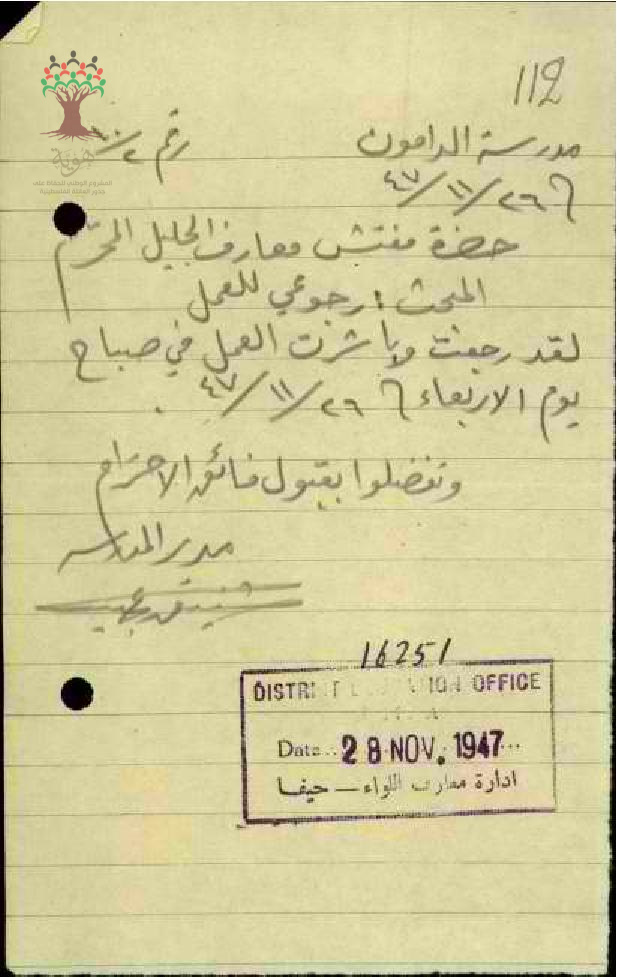 112
مدرسة الدامون
رقم ٢/١٠٠
٢٦/١١/٤٧
هوية
المشروع الوطني للحفاظ على
جذور العائلة الفلسطينية
حضرة مفتش معارف الجليل المحترم
المبحث : رجوعي للعمل
لقد رجعت وباشرت العمل في صباح
يوم الاربعاء ٢٦/١١/٤٧ .
وتفضلوا بقبول فائق الاحترام
مدير المدرسة
16251
DISTRICT EDUCATION OFFICE
Date 28 NOV. 1947
ادارة معارف اللواء — حيفا